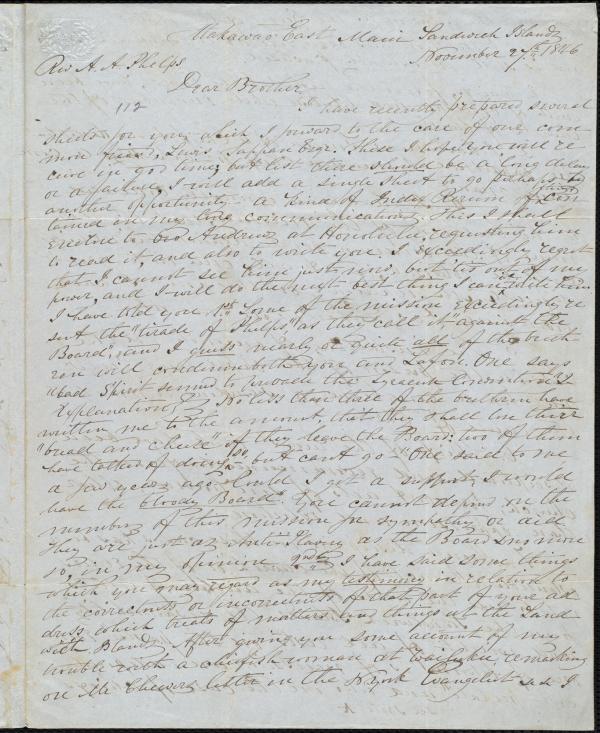 Makawao East Maui Sandwich Islands
November 27th 1846
Rev A. A. Phelps
Dear Brother
112 I have recently prepared several
sheets for you, which I forward to the care of our com
mon friend, Lewis Tappan Esqr. These I hope you will re
ceive in good time, but lest there should be a long delay
or a failure, I will add a single sheet to go perhaps by
another opportunity a kind of Index Rerum of things con
tained in my long communications. This I shall
enclose to bro Andrews at Honolulu, requesting him
to read it, and also to write you. I exceedingly regret
that I cannot see him just now, but tis out of my
power, and I will do the next best thing I can, write him
I have told you 1st Some of the mission exceedingly re
sent the "tirade of Phelps" as they call it, "against the
Board", and I guess nearly or quite all of the breth
ren will condemn both you and Lafon. One says
"bad Spirit seemed to pervade the Syracuse Convention"
Explanation, No less than three of the brethren have
written me to the amount, that they shall lose their
"bread and cheese" if they leave the Board: two of them
have talked of doing so, but cant go. One said to me
a few years ago "Could I get a support, I would
leave the bloody Board". You cannot depend on the
members of this mission for sympathy or aid
They are just as Anti Slavery as the Board & no more
so, in my opinion. 2nd I have said some things
which you may regard as my testimony in relation to
the correctness or incorrectness of that part of your ad
dress which treats of matters and things at the Sand
wich Islands. After giving you some account of my
trouble with a chiefish woman at Wailuku, remarking
on Mr Cheevers letter in the N York Evangelist and I